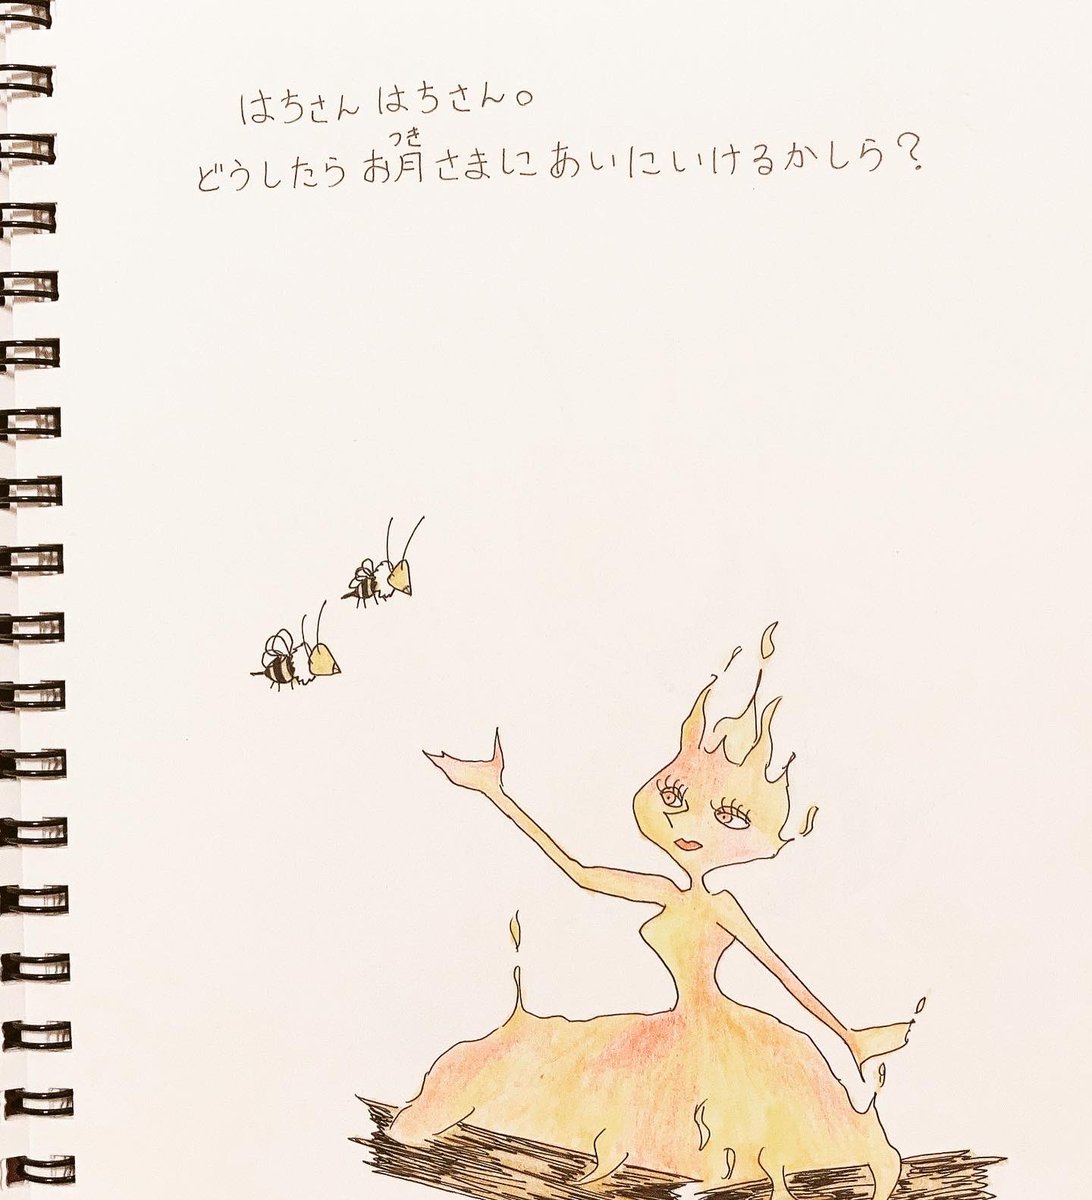 はちさん はちさん。
どうしたら お月さまに あいにいけるかしら？
つき